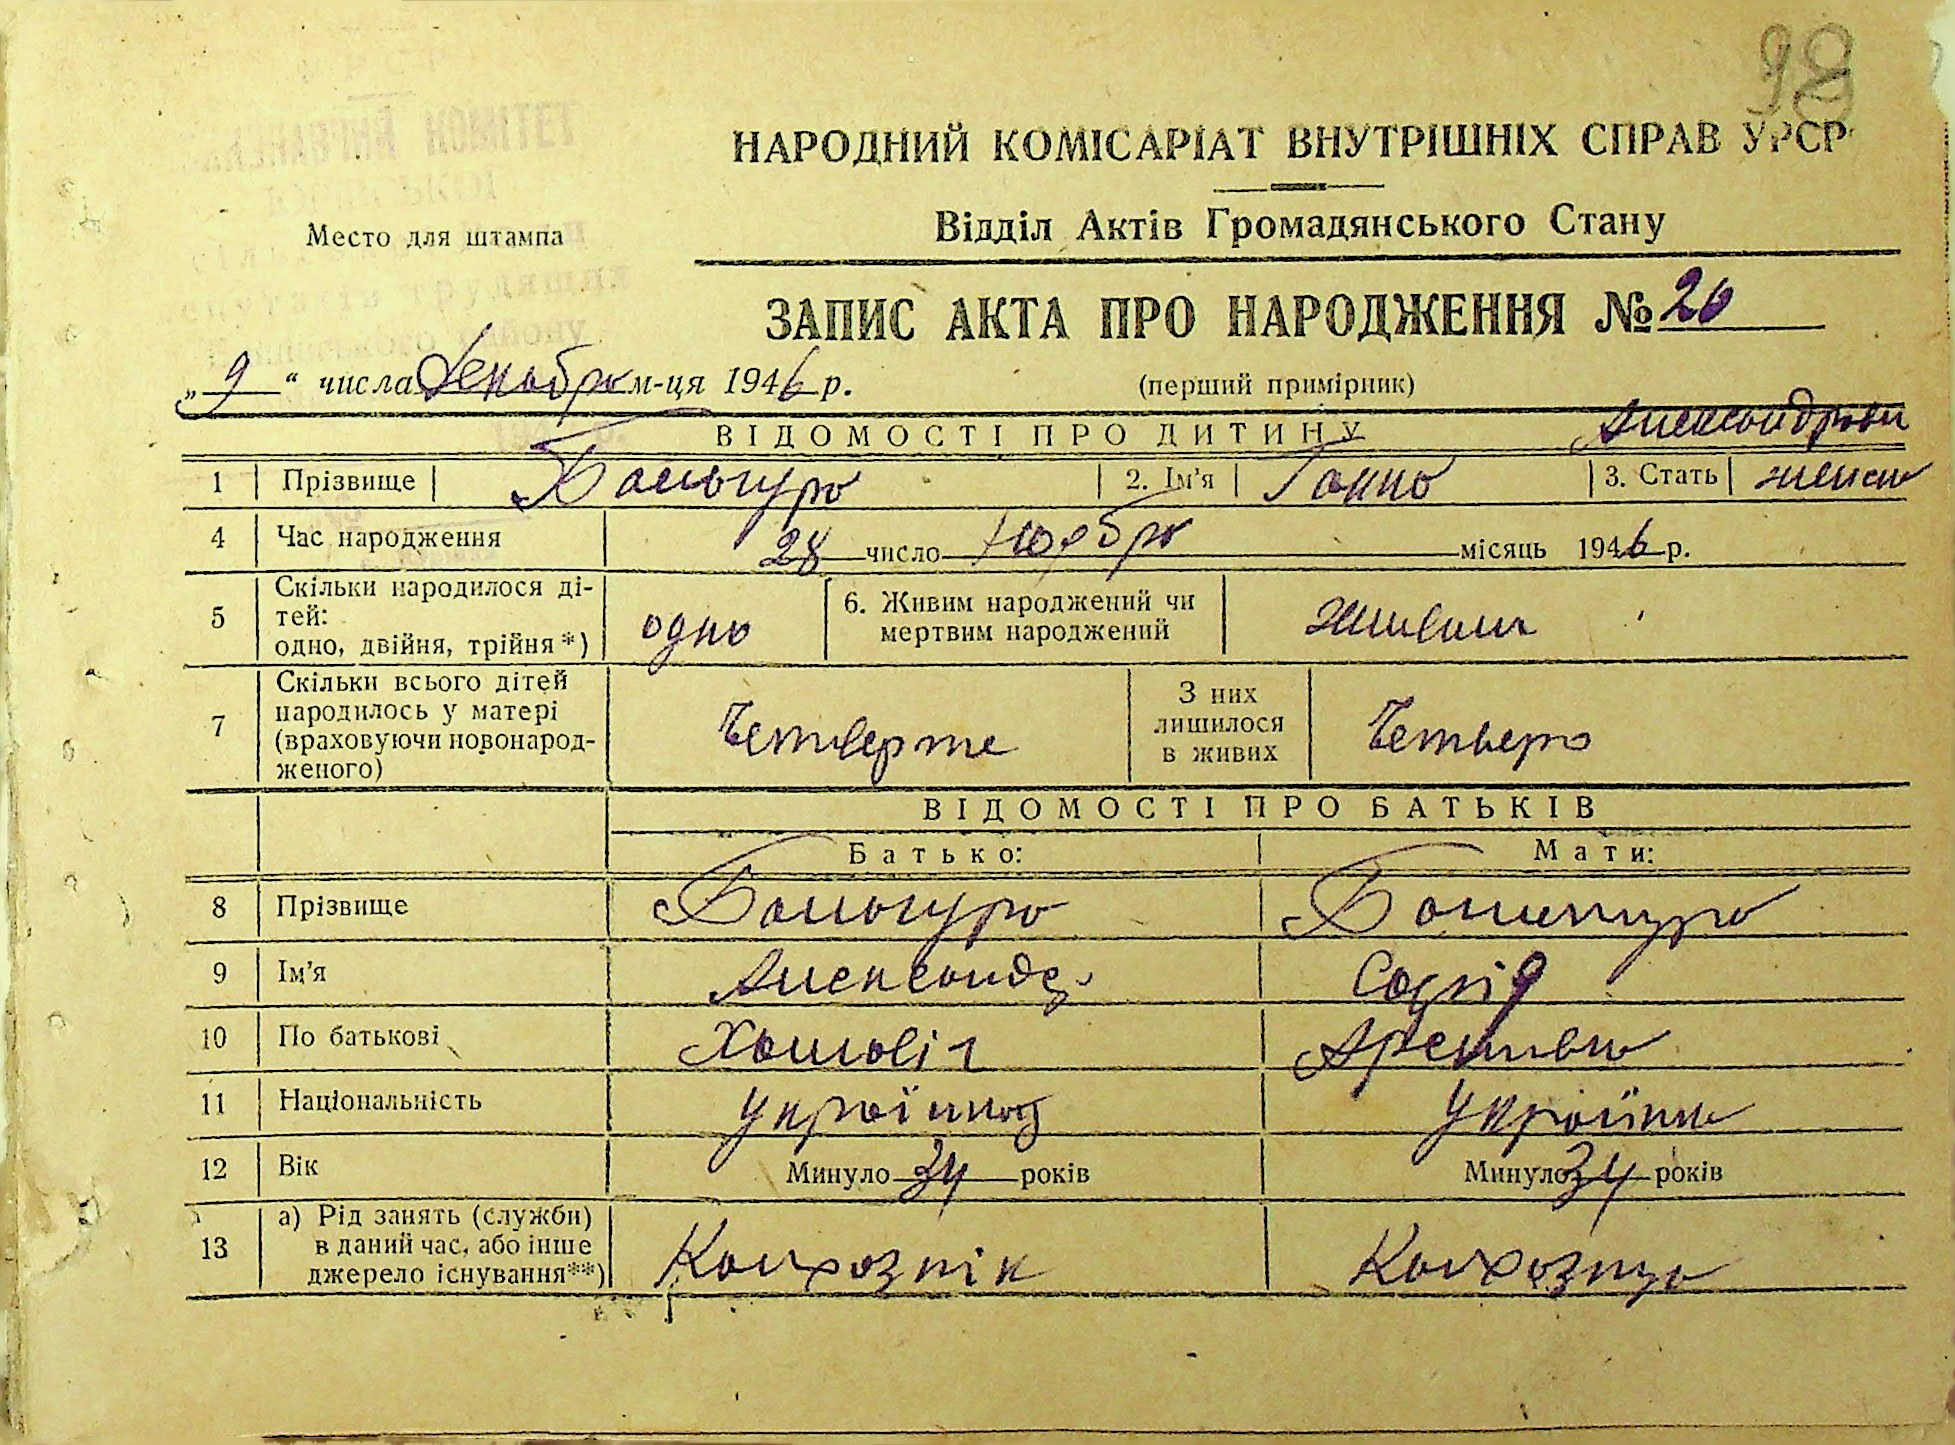 98
НАРОДНИЙ КОМІСАРІАТ ВНУТРІШНІХ СПРАВ УРСР
Відділ Актів Громадянського Стану
Место для штампа
ЗАПИС АКТА ПРО НАРОДЖЕННЯ № 20
„ 9 “ числа Декабря м-ця 1946 р.
(перший примірник)
ВІДОМОСТІ ПРО ДИТИНУ
1 Прізвище 2. Ім'я Ганна 3. Стать женск
4 Час народження 28 число Ноября місяць 1946 р.
5 Скільки народилося ді-
тей:
одно, двійня, трійня *) одно
6. Живим народжений чи
мертвим народжений живим
7 Скільки всього дітей
народилось у матері
(враховуючи новонарод-
женого) Четверте
З них
лишилося
в живих Четверо
ВІДОМОСТІ ПРО БАТЬКІВ
Батько: Мати:
8 Прізвище
9 Ім'я Александр Софія
10 По батькові
11 Національність Українец Українка
12 Вік Минуло 34 років Минуло 34 років
13 а) Рід занять (служби)
в даний час, або інше
джерело існування**) Колхознік Колхозница